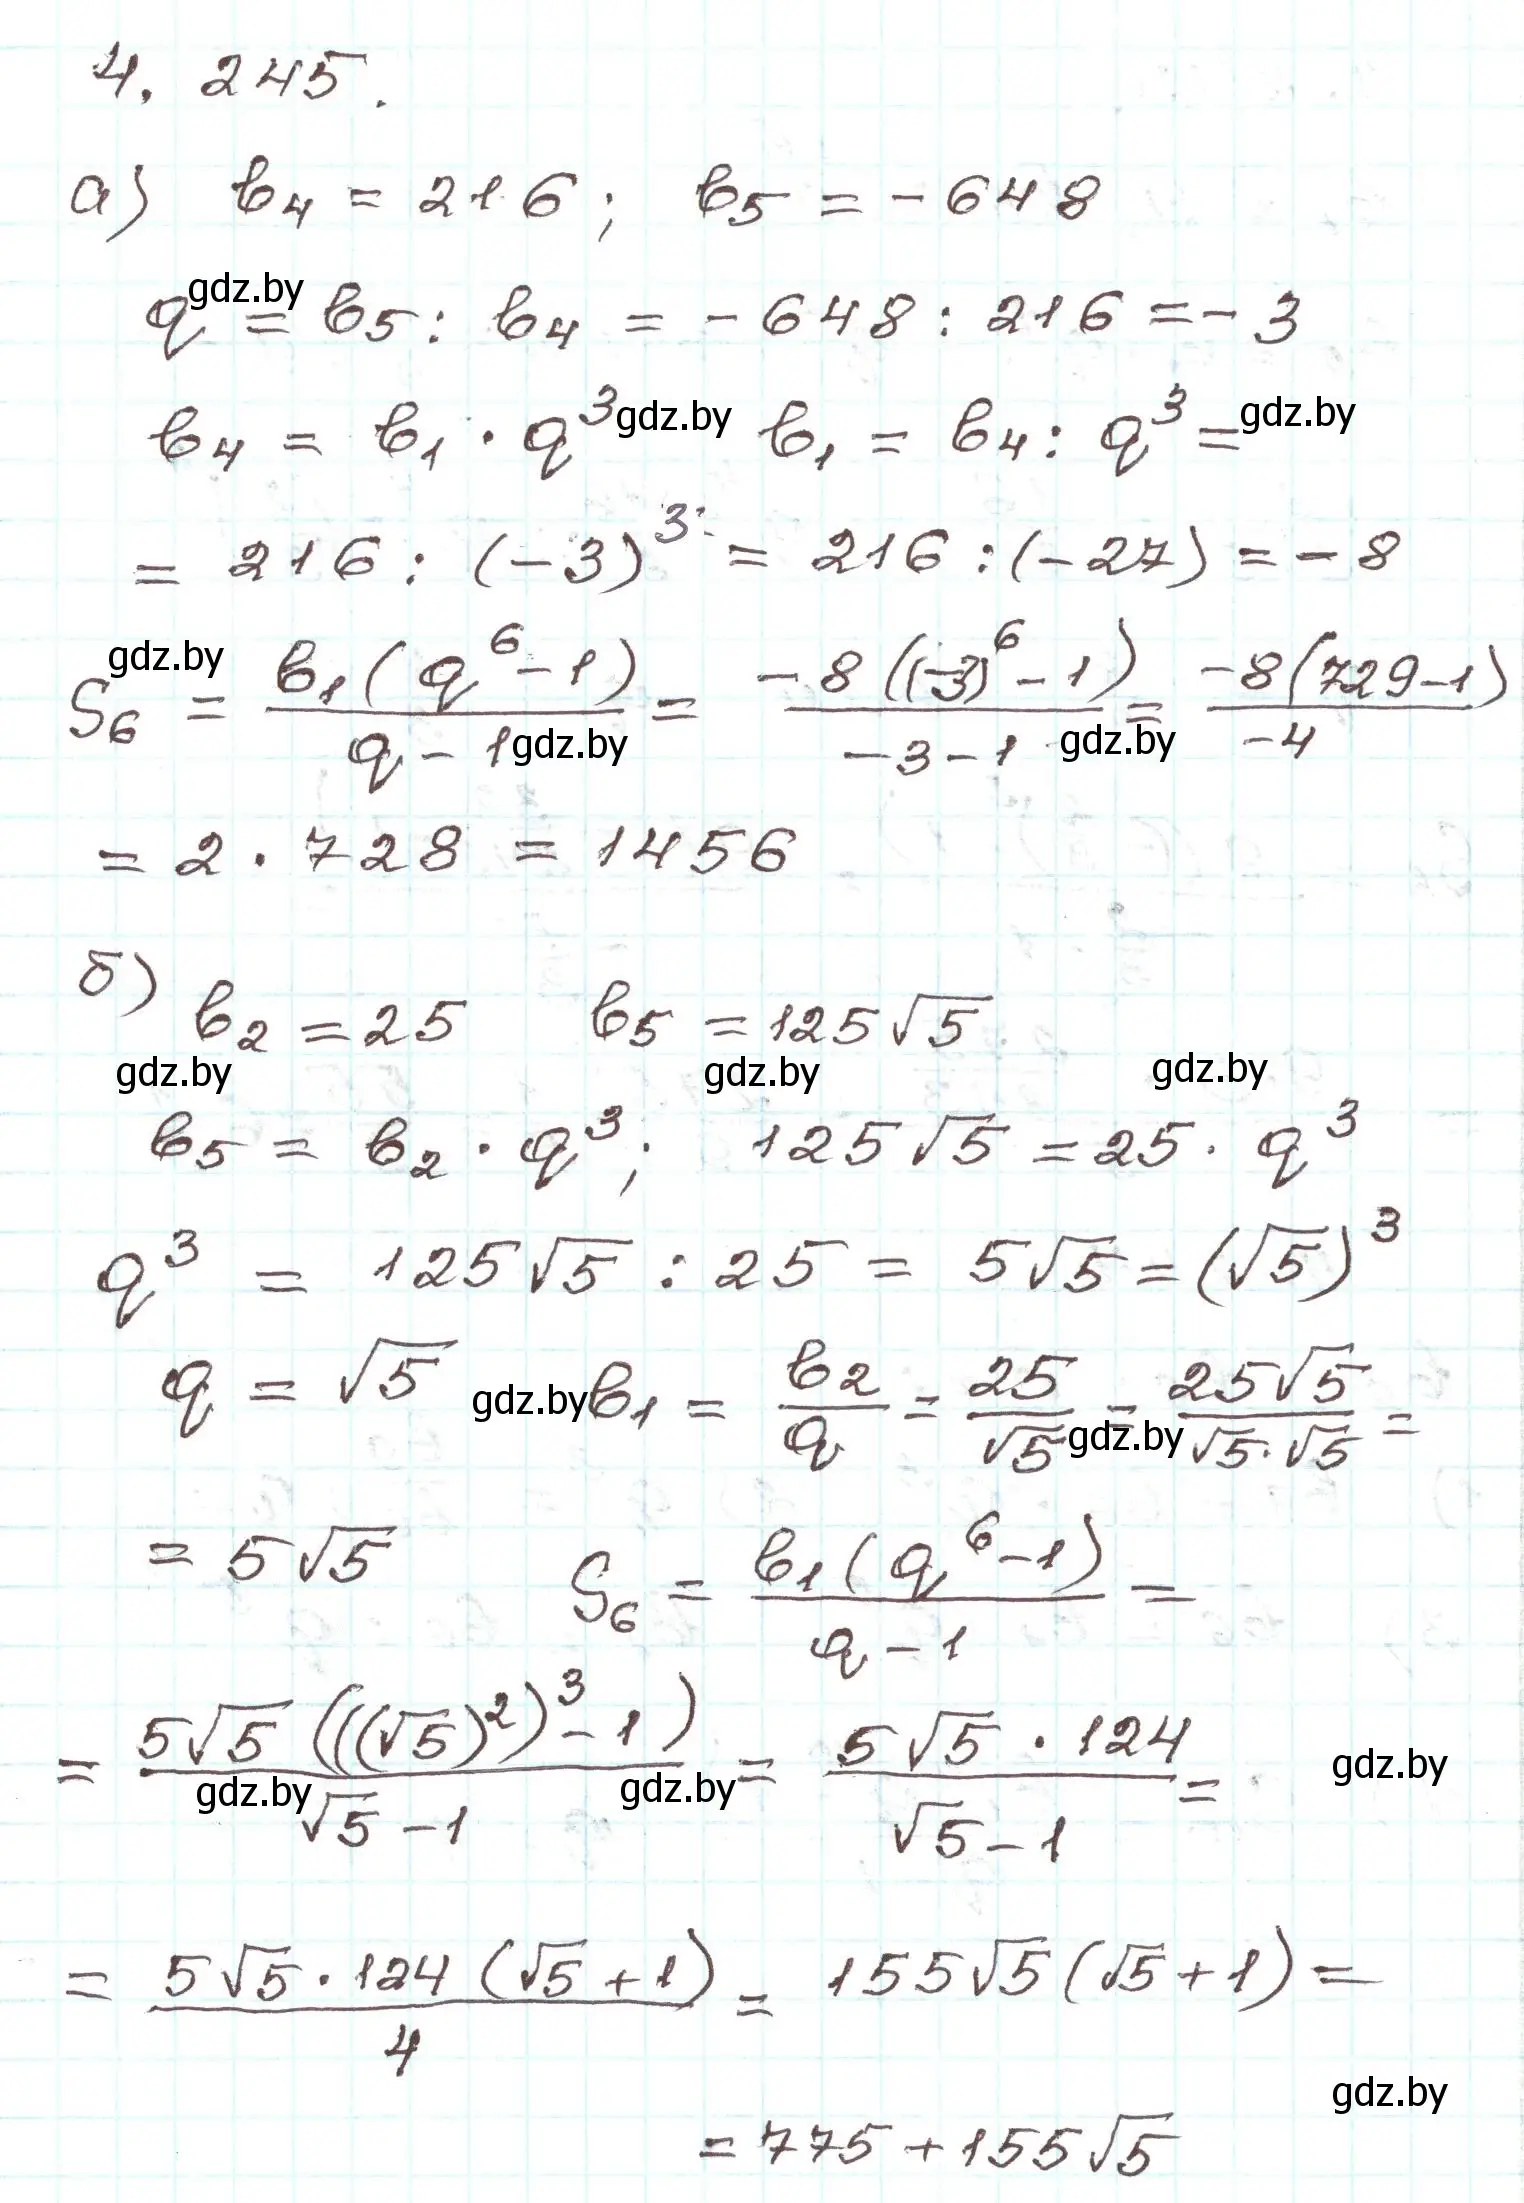 4. 245.
а) b₄ = 216; b₅ = -648
gdz.by
q = b₅ : b₄ = -648 : 216 = -3
b₄ = b₁ · q³ gdz.by b₁ = b₄ : q³ = gdz.by
= 216 : (-3)³ = 216 : (-27) = -8
gdz.by
S₆ = b₁(q⁶-1)/(q-1) = -8((-3)⁶-1)/(-3-1) = -8(729-1)/(-4)
gdz.by gdz.by
= 2 · 728 = 1456
б) b₂ = 25 b₅ = 125√5
gdz.by gdz.by gdz.by
b₅ = b₂ · q³; 125√5 = 25 · q³
q³ = 125√5 : 25 = 5√5 = (√5)³
q = √5 gdz.by b₁ = b₂/q = 25/√5 = 25√5/(√5·√5) =
gdz.by
= 5√5 S₆ = b₁(q⁶-1)/(q-1) =
= 5√5(((√5)²)³-1)/(√5-1) = 5√5 · 124/(√5-1) = gdz.by
gdz.by gdz.by
= 5√5 · 124(√5+1)/4 = 155√5(√5+1) =
gdz.by
= 775 + 155√5